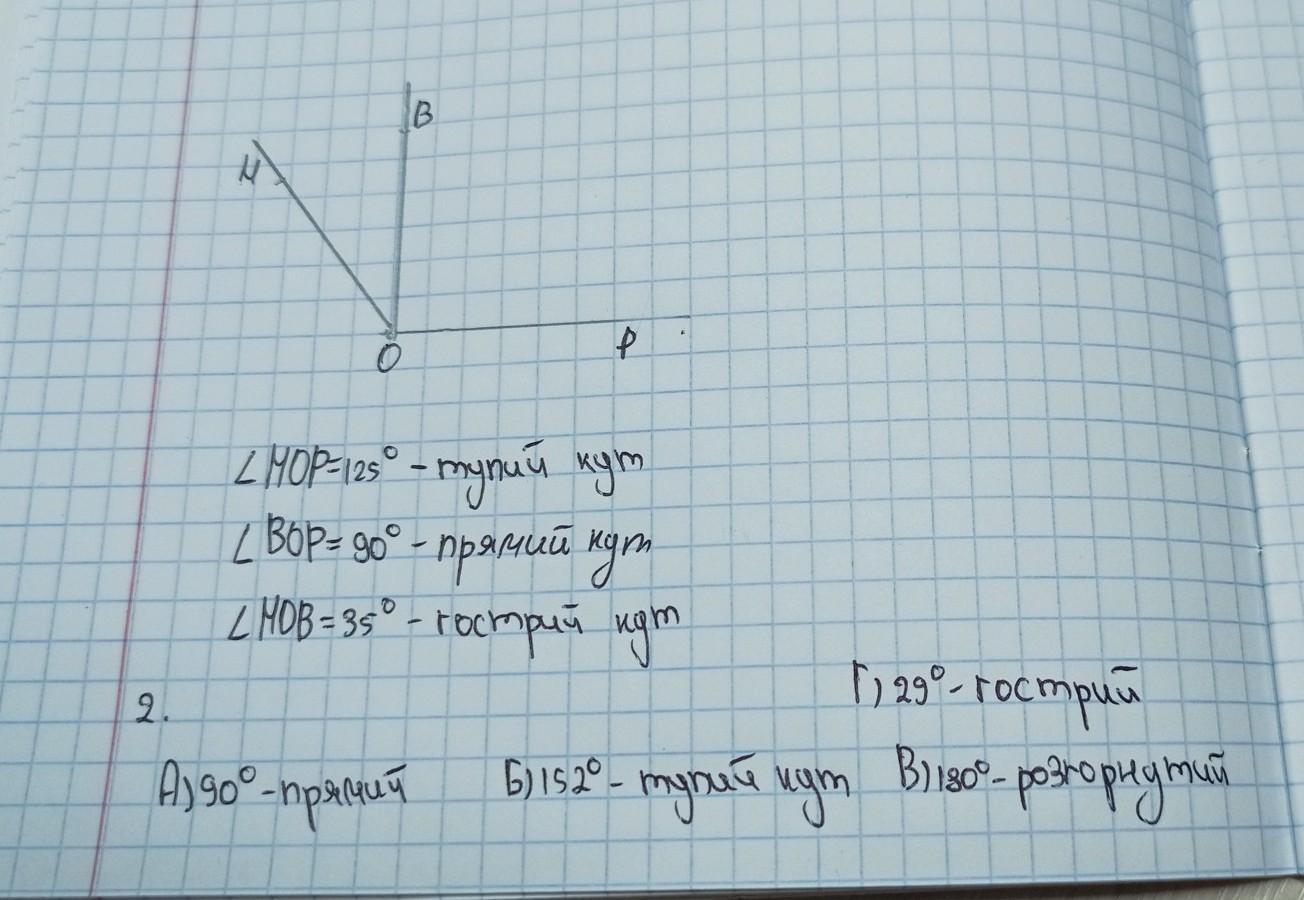 В
М
О
Р
∠МОР=125° - тупий кут
∠ВОР=90° - прямий кут
∠МОВ=35° - гострий кут
2.
Г) 29° - гострий
А) 90° - прямий Б) 152° - тупий кут В) 180° - розгорнутий